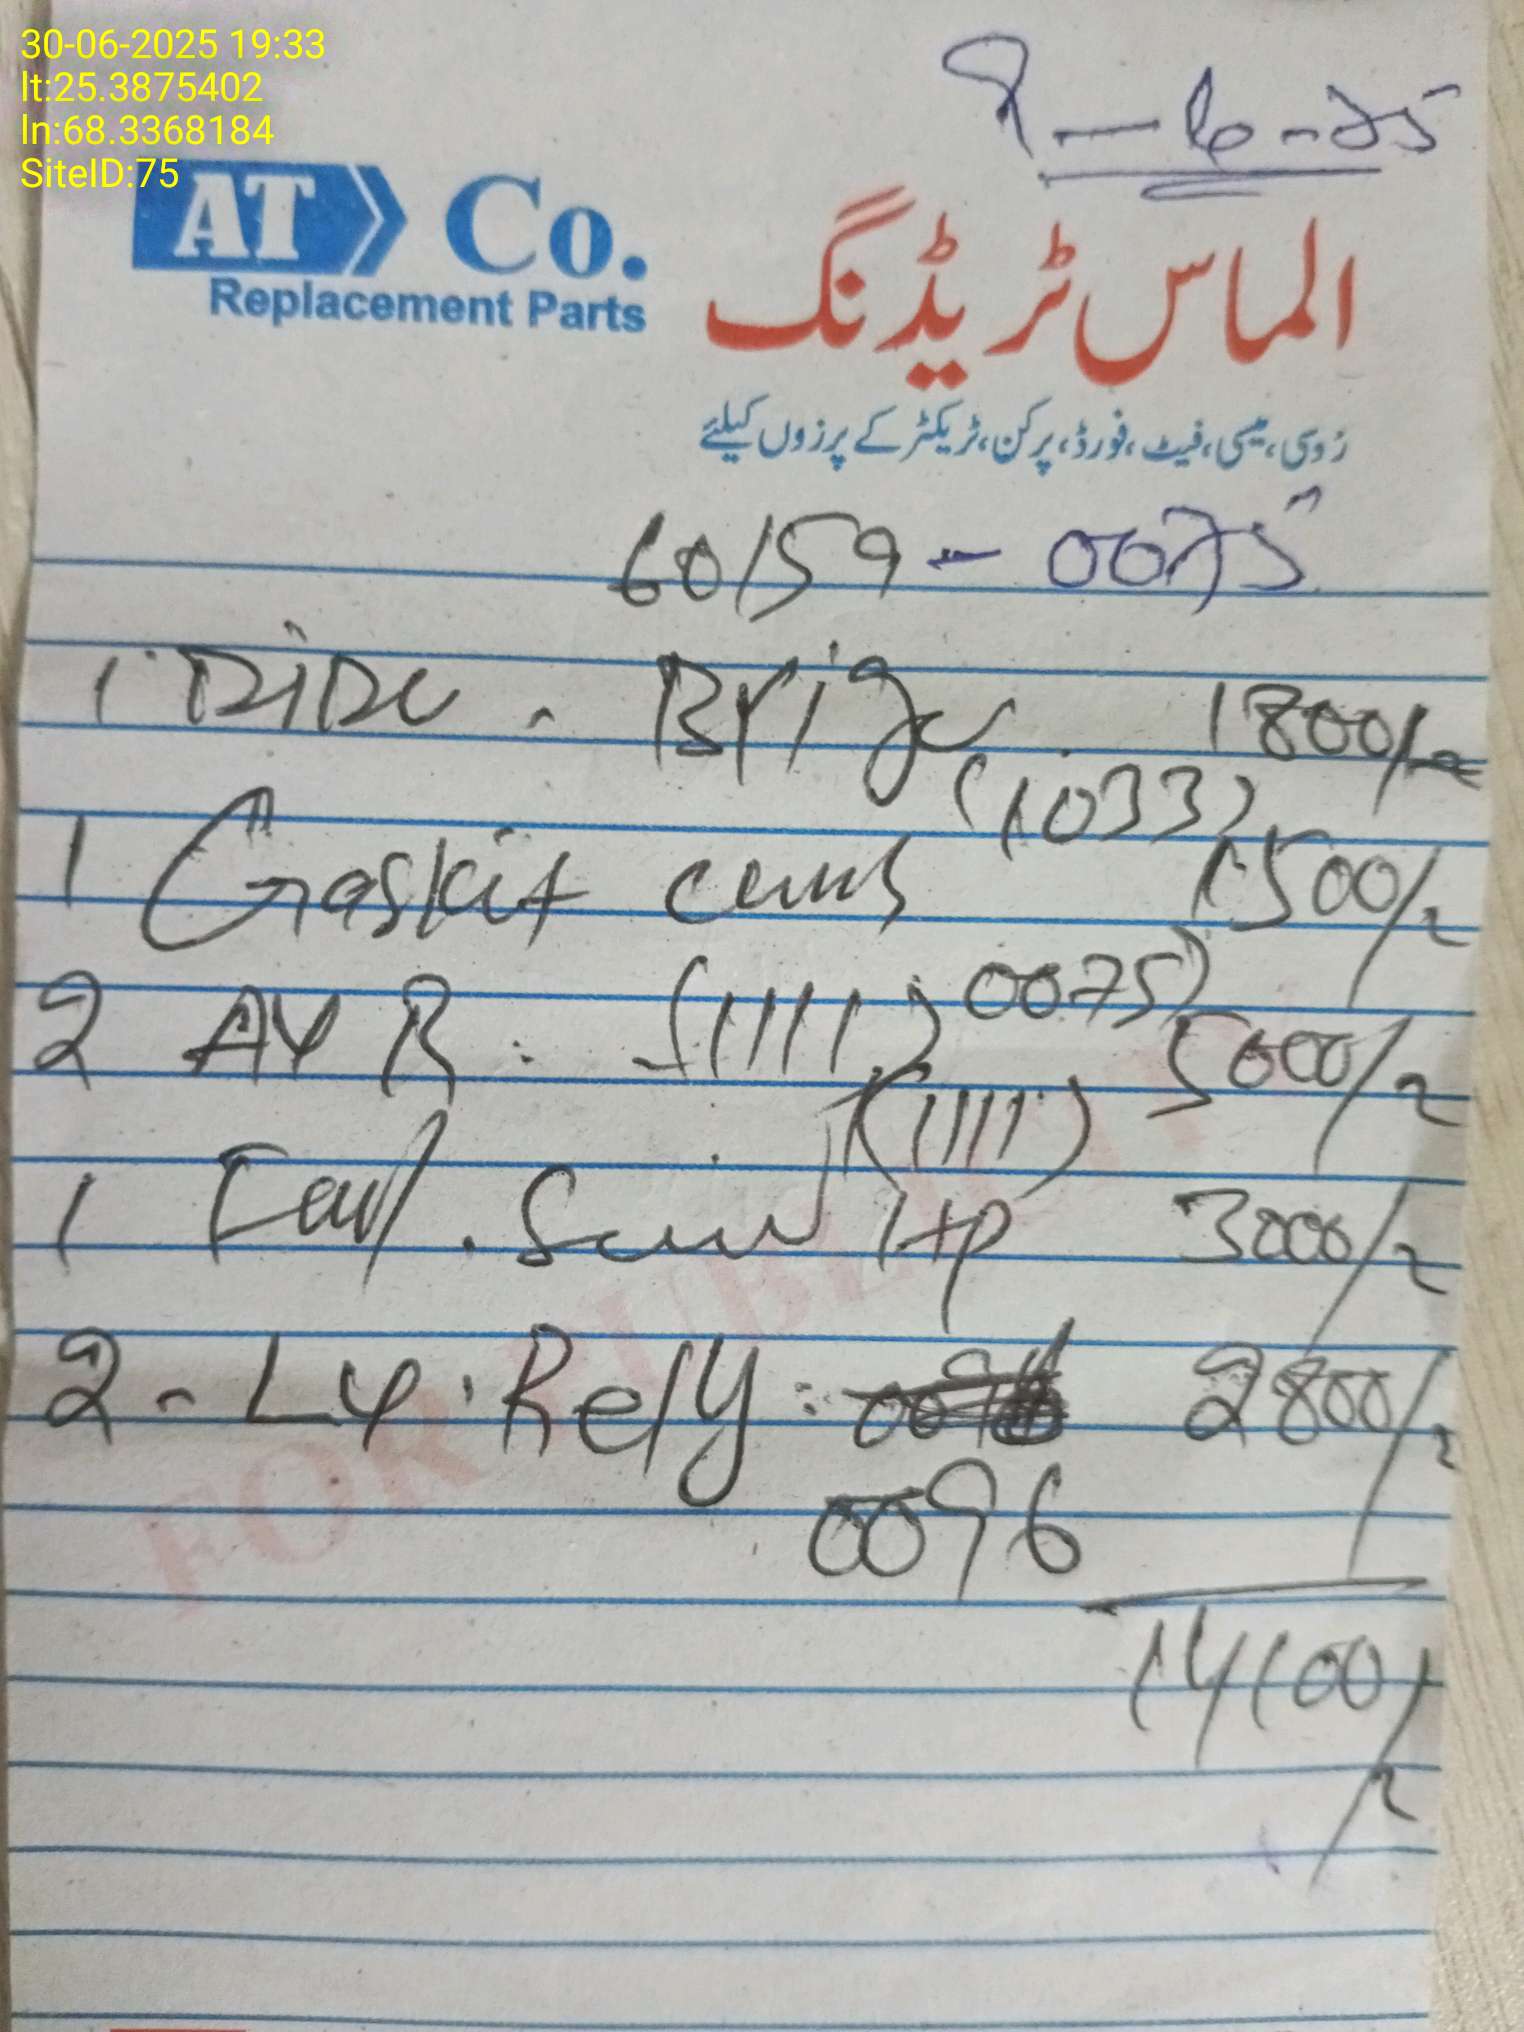 30-06-2025 19:33
lt:25.3875402
ln:68.3368184
SiteID:75
9-6-25
AT Co.
Replacement Parts
الماس ٹریڈنگ
رُوسی، میسی، فیٹ، فورڈ، پرکن، ٹریکٹر کے پرزوں کیلئے
60159 - 0075
1 Brige 1800/-
(1033)
1 Gaskit 1500/-
0075)
2 AVR. (1111) 5000/-
(1111)
1 3000/-
2 - Rely: 2800/-
0096
14100/-
FOR PUBLICITY